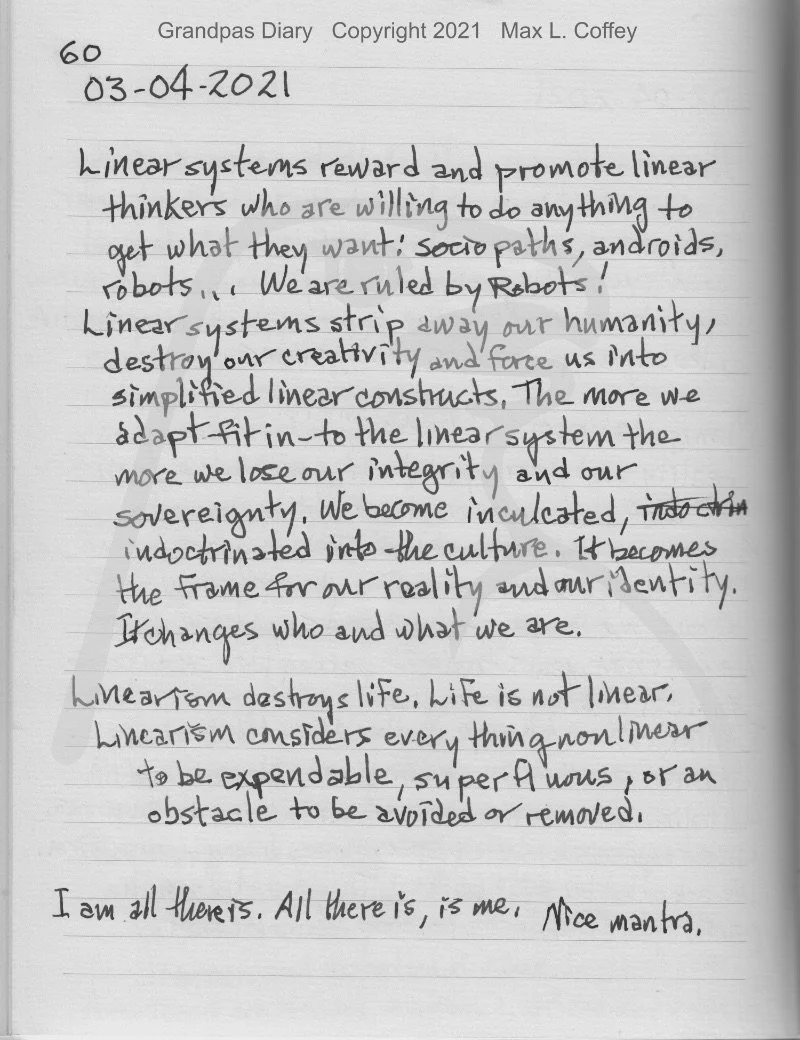 Grandpas Diary Copyright 2021 Max L. Coffey
60
03-04-2021
Linear systems reward and promote linear
thinkers who are willing to do anything to
get what they want! sociopaths, androids,
robots... We are ruled by Robots!
Linear systems strip away our humanity,
destroy our creativity and force us into
simplified linear constructs. The more we
adapt-fit in-to the linear system the
more we lose our integrity and our
sovereignty. We become inculcated, indoctrin
indoctrinated into the culture. It becomes
the frame for our reality and our identity.
It changes who and what we are.
Linearism destroys life. Life is not linear.
Linearism considers every thing nonlinear
to be expendable, superfluous, or an
obstacle to be avoided or removed.
I am all there is. All there is, is me. Nice mantra.